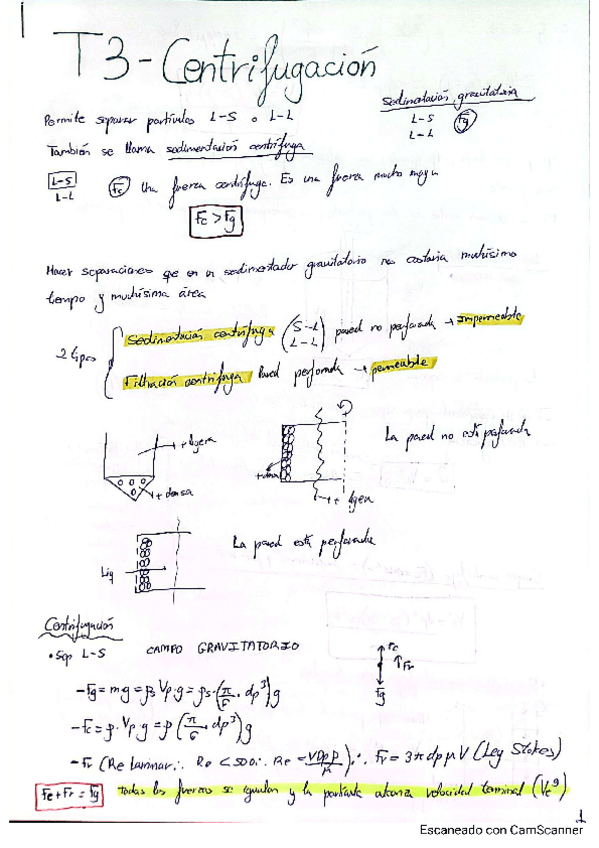 T3-Centrifugación
Permite separar partículas L-S o L-L
Sedimentación gravitatoria
L-S Fg
L-L
También se llama sedimentación centrífuga
L-S
L-L
Fc Una fuerza centrífuga. Es una fuerza mucho mayor
Fc > Fg
Hacer separaciones que en un sedimentador gravitatorio nos costaría muchísimo
tiempo y muchísima área
2 tipos
Sedimentación centrífuga (S-L L-L) pared no perforada → impermeable
Filtración centrífuga Pared perforada → permeable
+ ligera
+ densa
+ ligera
La pared no está perforada
Liq
La pared está perforada
Centrifugación
• Sep L-S CAMPO GRAVITATORIO
Fc
Fr
Fg
-Fg = mg = ρs Vp·g = ρs·(π/6 · dp³)g
-Fc = ρ·Vp·g = ρ(π/6 · dp³)g
-Fr (Re laminar ∴ Re < 500 ∴ Re = VDpρ/μ) ∴ Fr = 3πdpμV (Ley Stokes)
Fe + Fr = Fg todas las fuerzas se igualan y la partícula alcanza velocidad terminal
1
Escaneado con CamScanner